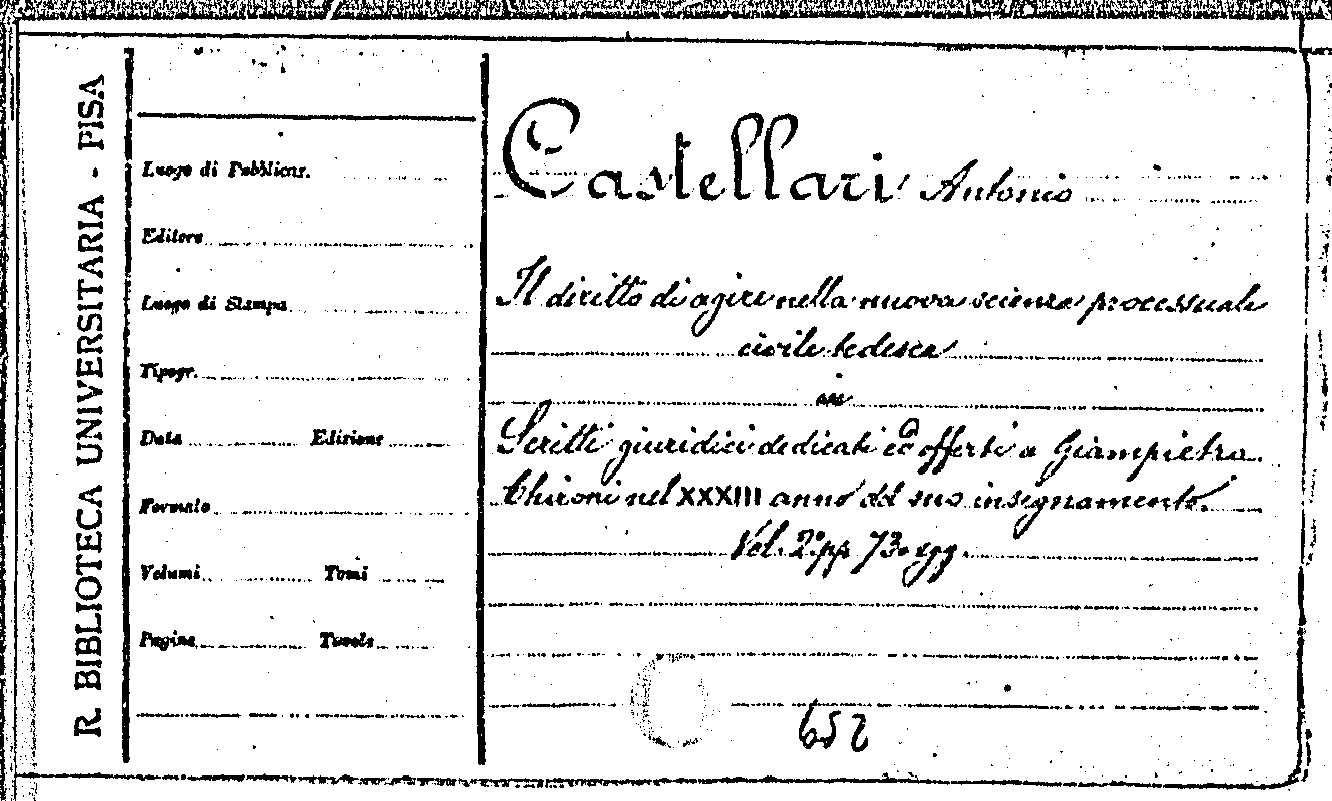 R. BIBLIOTECA UNIVERSITARIA - PISA
Luogo di Pubblicaz.
Editore
Luogo di Stampa
Tipogr.
Data Edizione
Formato
Volumi Tomi
Pagine Tavole
Castellari Antonio
Il diritto di agire nella nuova scienza processuale
civile tedesca
in
Scritti giuridici dedicati ed offerti a Giampietro
Chironi nel XXXIII anno del suo insegnamento.
Vol. 2° pp. 73 e sgg.
652